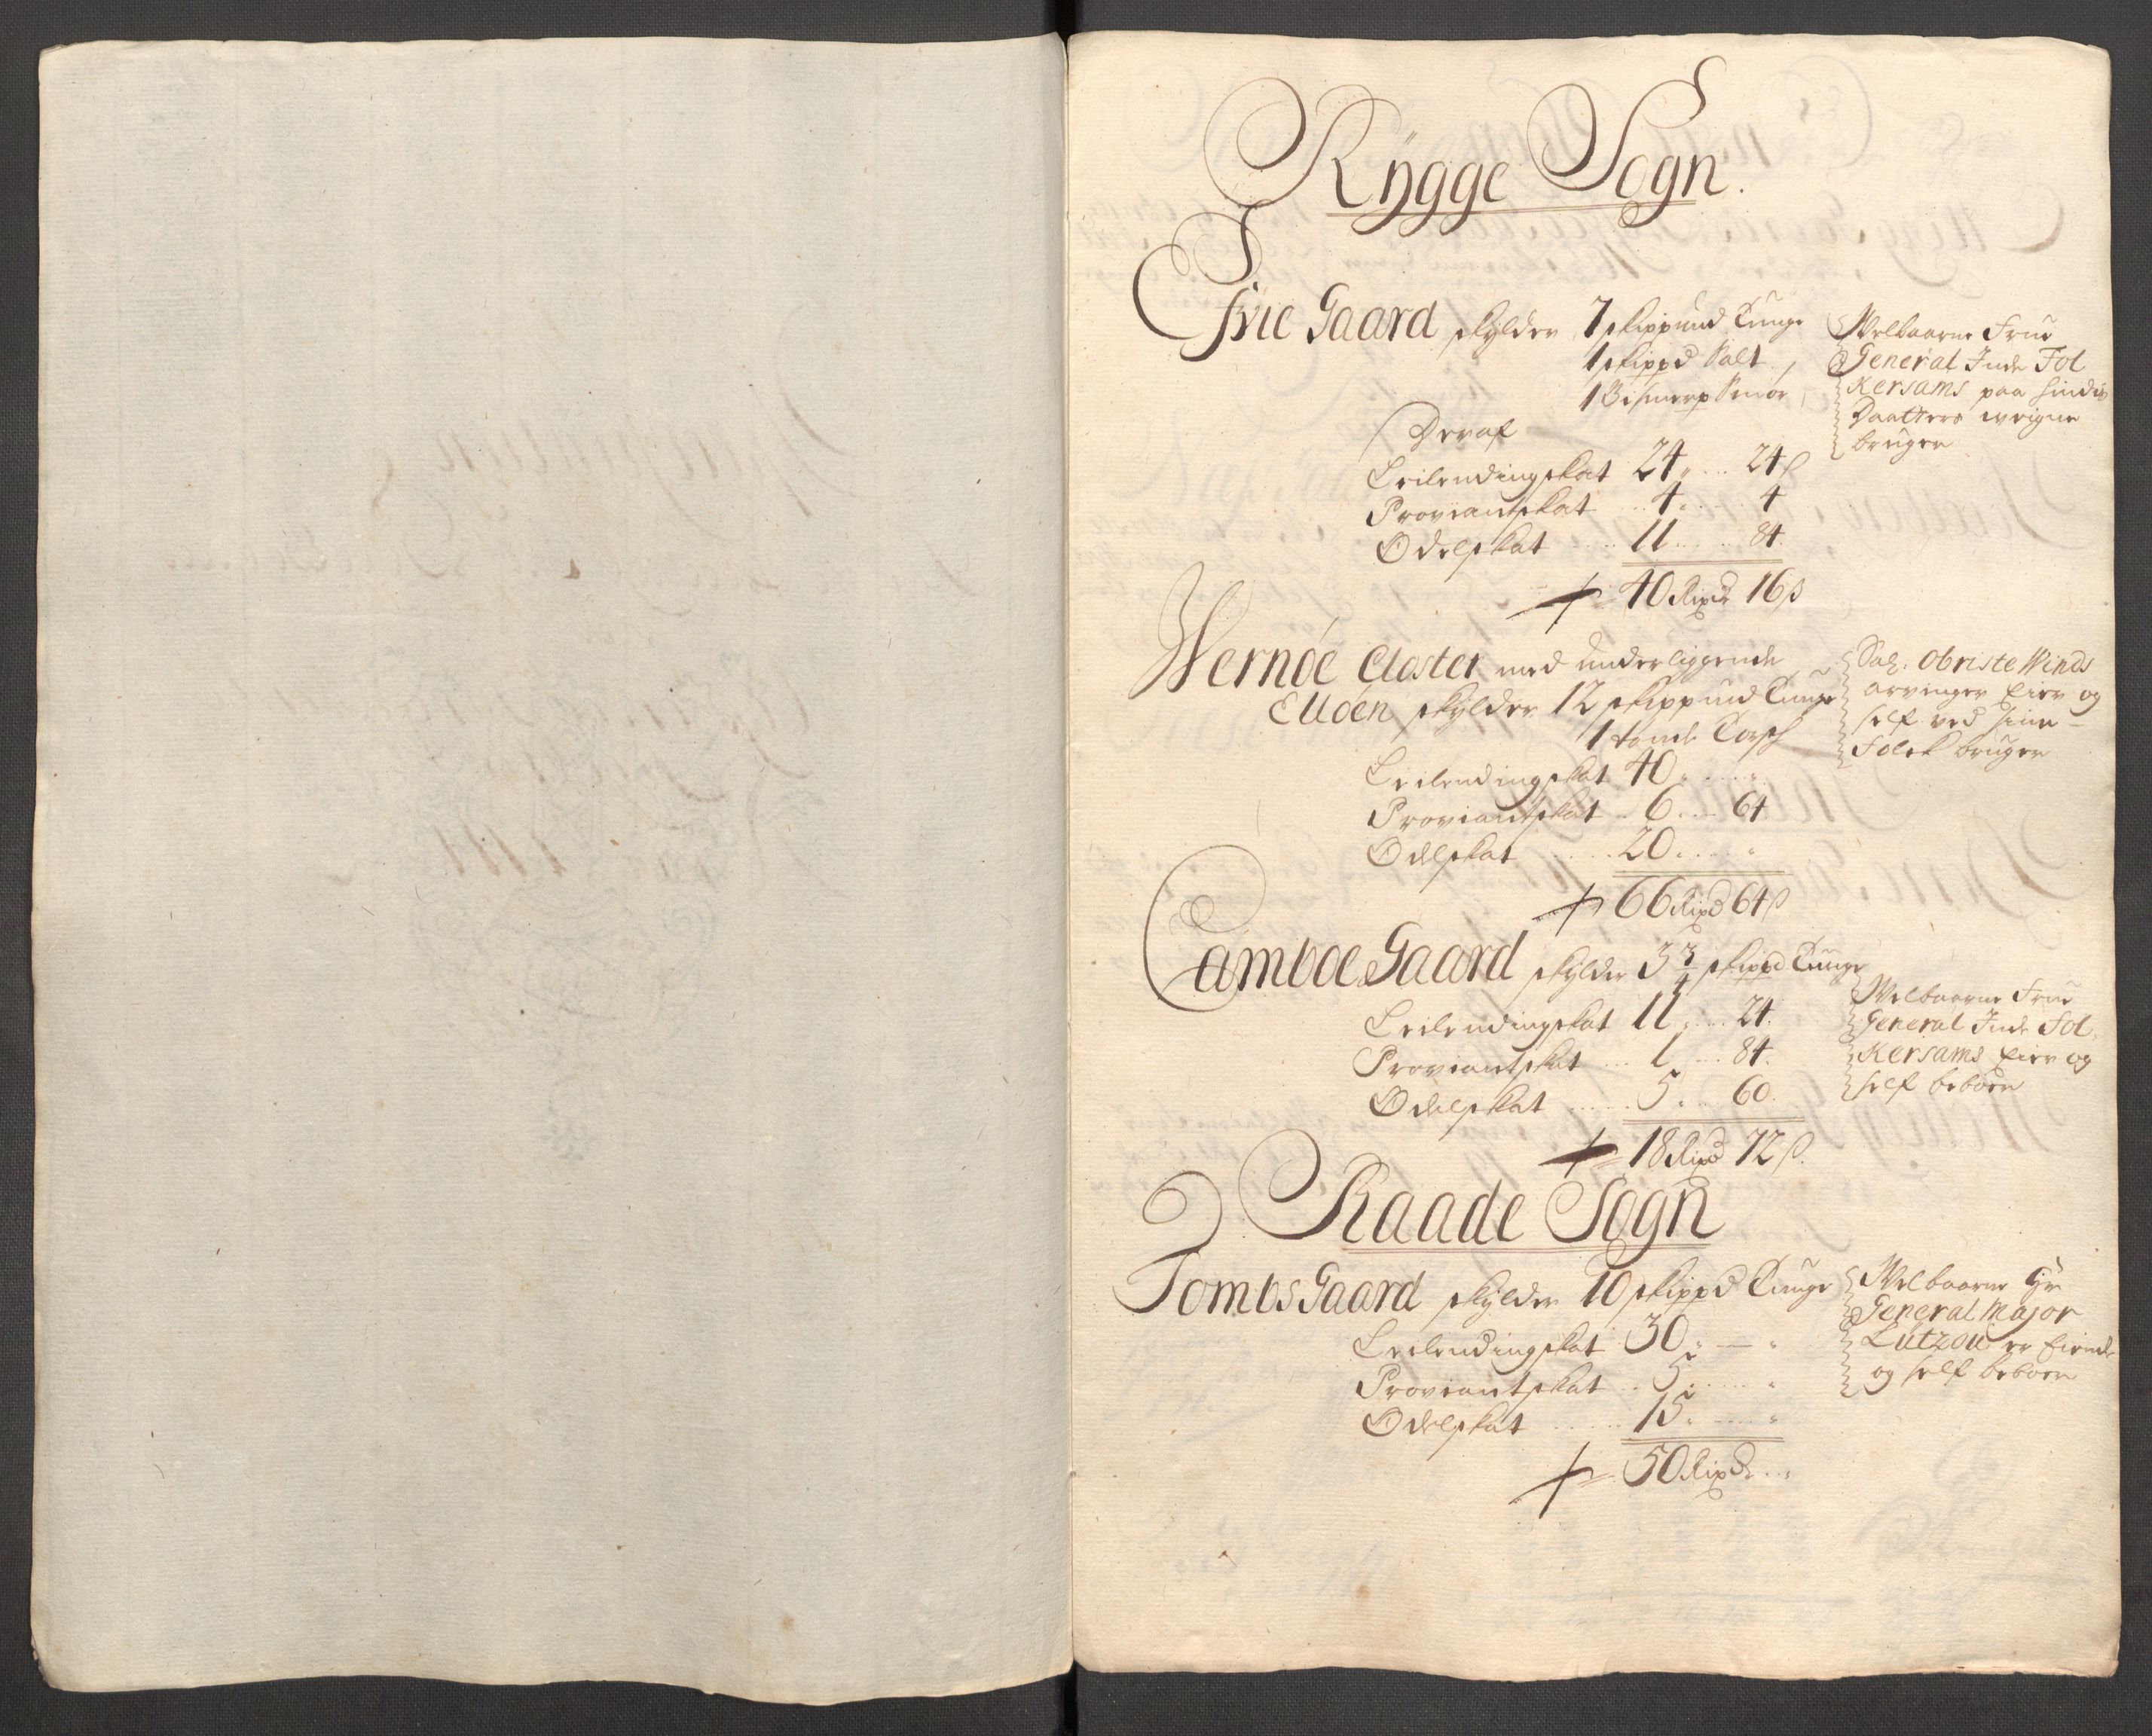 Rÿgge Sogn.
Evie Gaard skylder 7 skippund Tunge
1 skippd Salt
1 Bismerp Smør
Deraf
Leilendingskat 24 .. 24 s
Proviantskat .. 4 .. 4
Odelskat .. 11 .. 84.
40 Rixdr 16 s
Welbaarne Frue
General Inde Fol
Kersams paa hindis
Daatters weigne
bruger
Wernöe Closter med underliggende
Elløen skylder 12 skippund Tunge
1 tønde Torsch
Leilendingskat 40 ..
Proviantskat .. 6 .. 64
Odelskat .. 20 ..
66 Rixd 64 s
Sal: Obriste Winds
arvinger Eier og
self ved sine
Folck bruger
Camboe Gaard skylder 3 3/4 skippd Tunge
Leilendingskat 11 .. 24.
Proviantskat .. 1 .. 84.
Odelskat .. 5 .. 60.
18 Rixd 72 s.
Welbaarne Frue
General Inde Fol
Kersams Eier og
self beboer
Raade Sogn
Tombs Gaard skylder 10 skippd Tunge
Leilendingskat 30 ..
Proviantskat .. 5 ..
Odelskat .. 15 ..
50 Rixdr ..
Welbaarne Hr
General Major
Lützou er Eiende
og self beboer